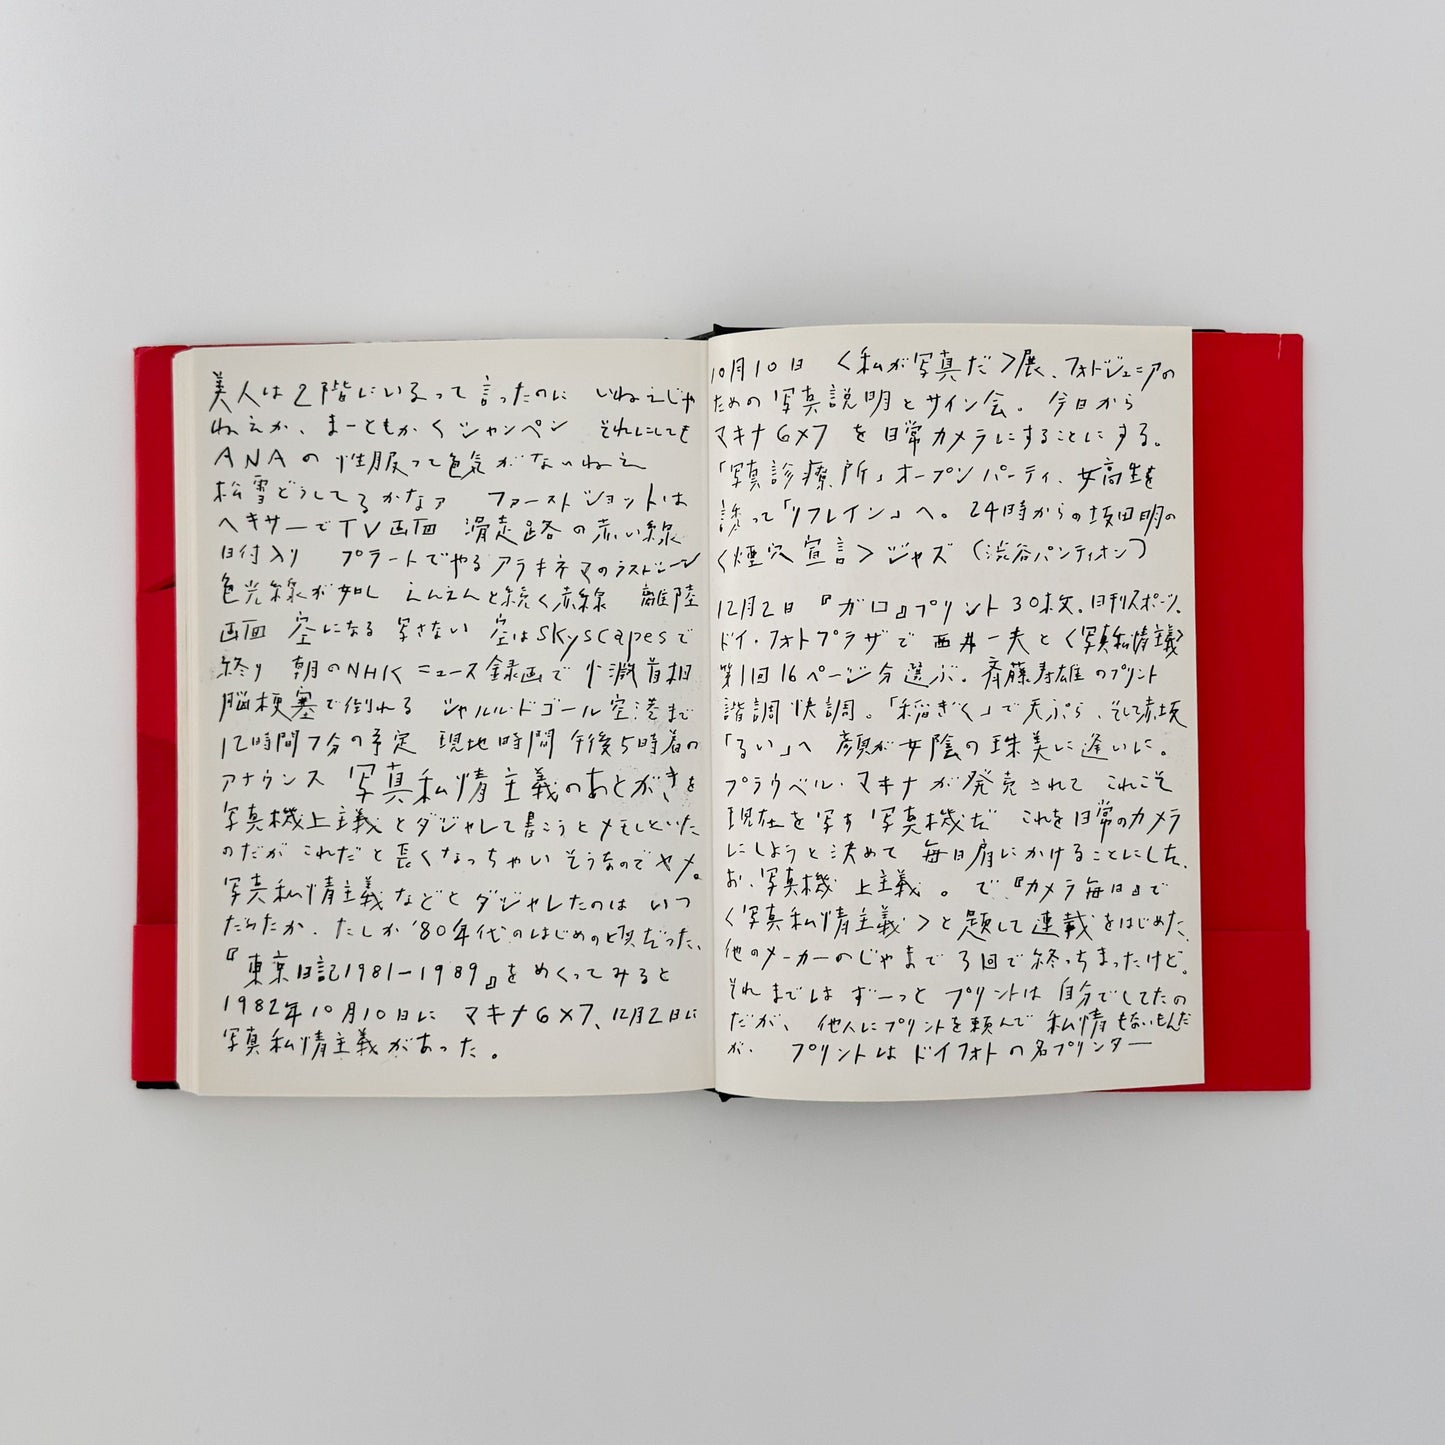 美人は2階にいるって言ったのに いねえじゃ
ねえか、まーともかくシャンペン それにしても
ANAの制服って色気がないねえ
松雪どうしてるかなァ ファーストショットは
ヘキサーでTV画面 滑走路の赤い線
日付入り プラートでやるアラキネマのラストシーン
色光線が如し えんえんと続く赤線 離陸
画面 空になる 写さない 空はskyscapesで
終り 朝のNHKニュース録画で小渕首相
脳梗塞で倒れる シャルル・ドゴール空港まで
12時間7分の予定 現地時間 午後5時着の
アナウンス 写真私情主義のあとがきを
写真機上主義とダジャレて書こうとメモしといた
のだが これだと長くなっちゃいそうなのでヤメ。
写真私情主義などとダジャレたのは いつ
だったか、たしか'80年代のはじめの頃だった、
『東京日記1981-1989』をめくってみると
1982年10月10日に マキナ6×7、12月2日に
写真私情主義があった。
10月10日 〈私が写真だ〉展、フォトジェニアの
ための写真説明とサイン会。今日から
マキナ6×7を日常カメラにすることにする。
「写真診療所」オープンパーティ、女高生を
誘って「リフレイン」へ。24時からの坂田明の
〈煙穴宣言〉ジャズ(渋谷パンティオン)
12月2日 『ガロ』プリント30枚、日刊スポーツ、
ドイ・フォトプラザで西井一夫と〈写真私情主義〉
第1回16ページ分選ぶ。斉藤寿雄のプリント
諧調快調。「稲ぎく」で天ぷら、そして赤坂
「るい」へ 顔が女陰の珠美に逢いに。
プラウベル・マキナが発売されて これこそ
現在を写す写真機だ これを日常のカメラ
にしようと決めて 毎日肩にかけることにした、
お、写真機上主義。で『カメラ毎日』で
〈写真私情主義〉と題して連載をはじめた、
他のメーカーのじゃまで3回で終っちまったけど。
それまではずーっとプリントは自分でしてたの
だが、他人にプリントを頼んで 私情もないもんだ
が、 プリントはドイフォトの名プリンター